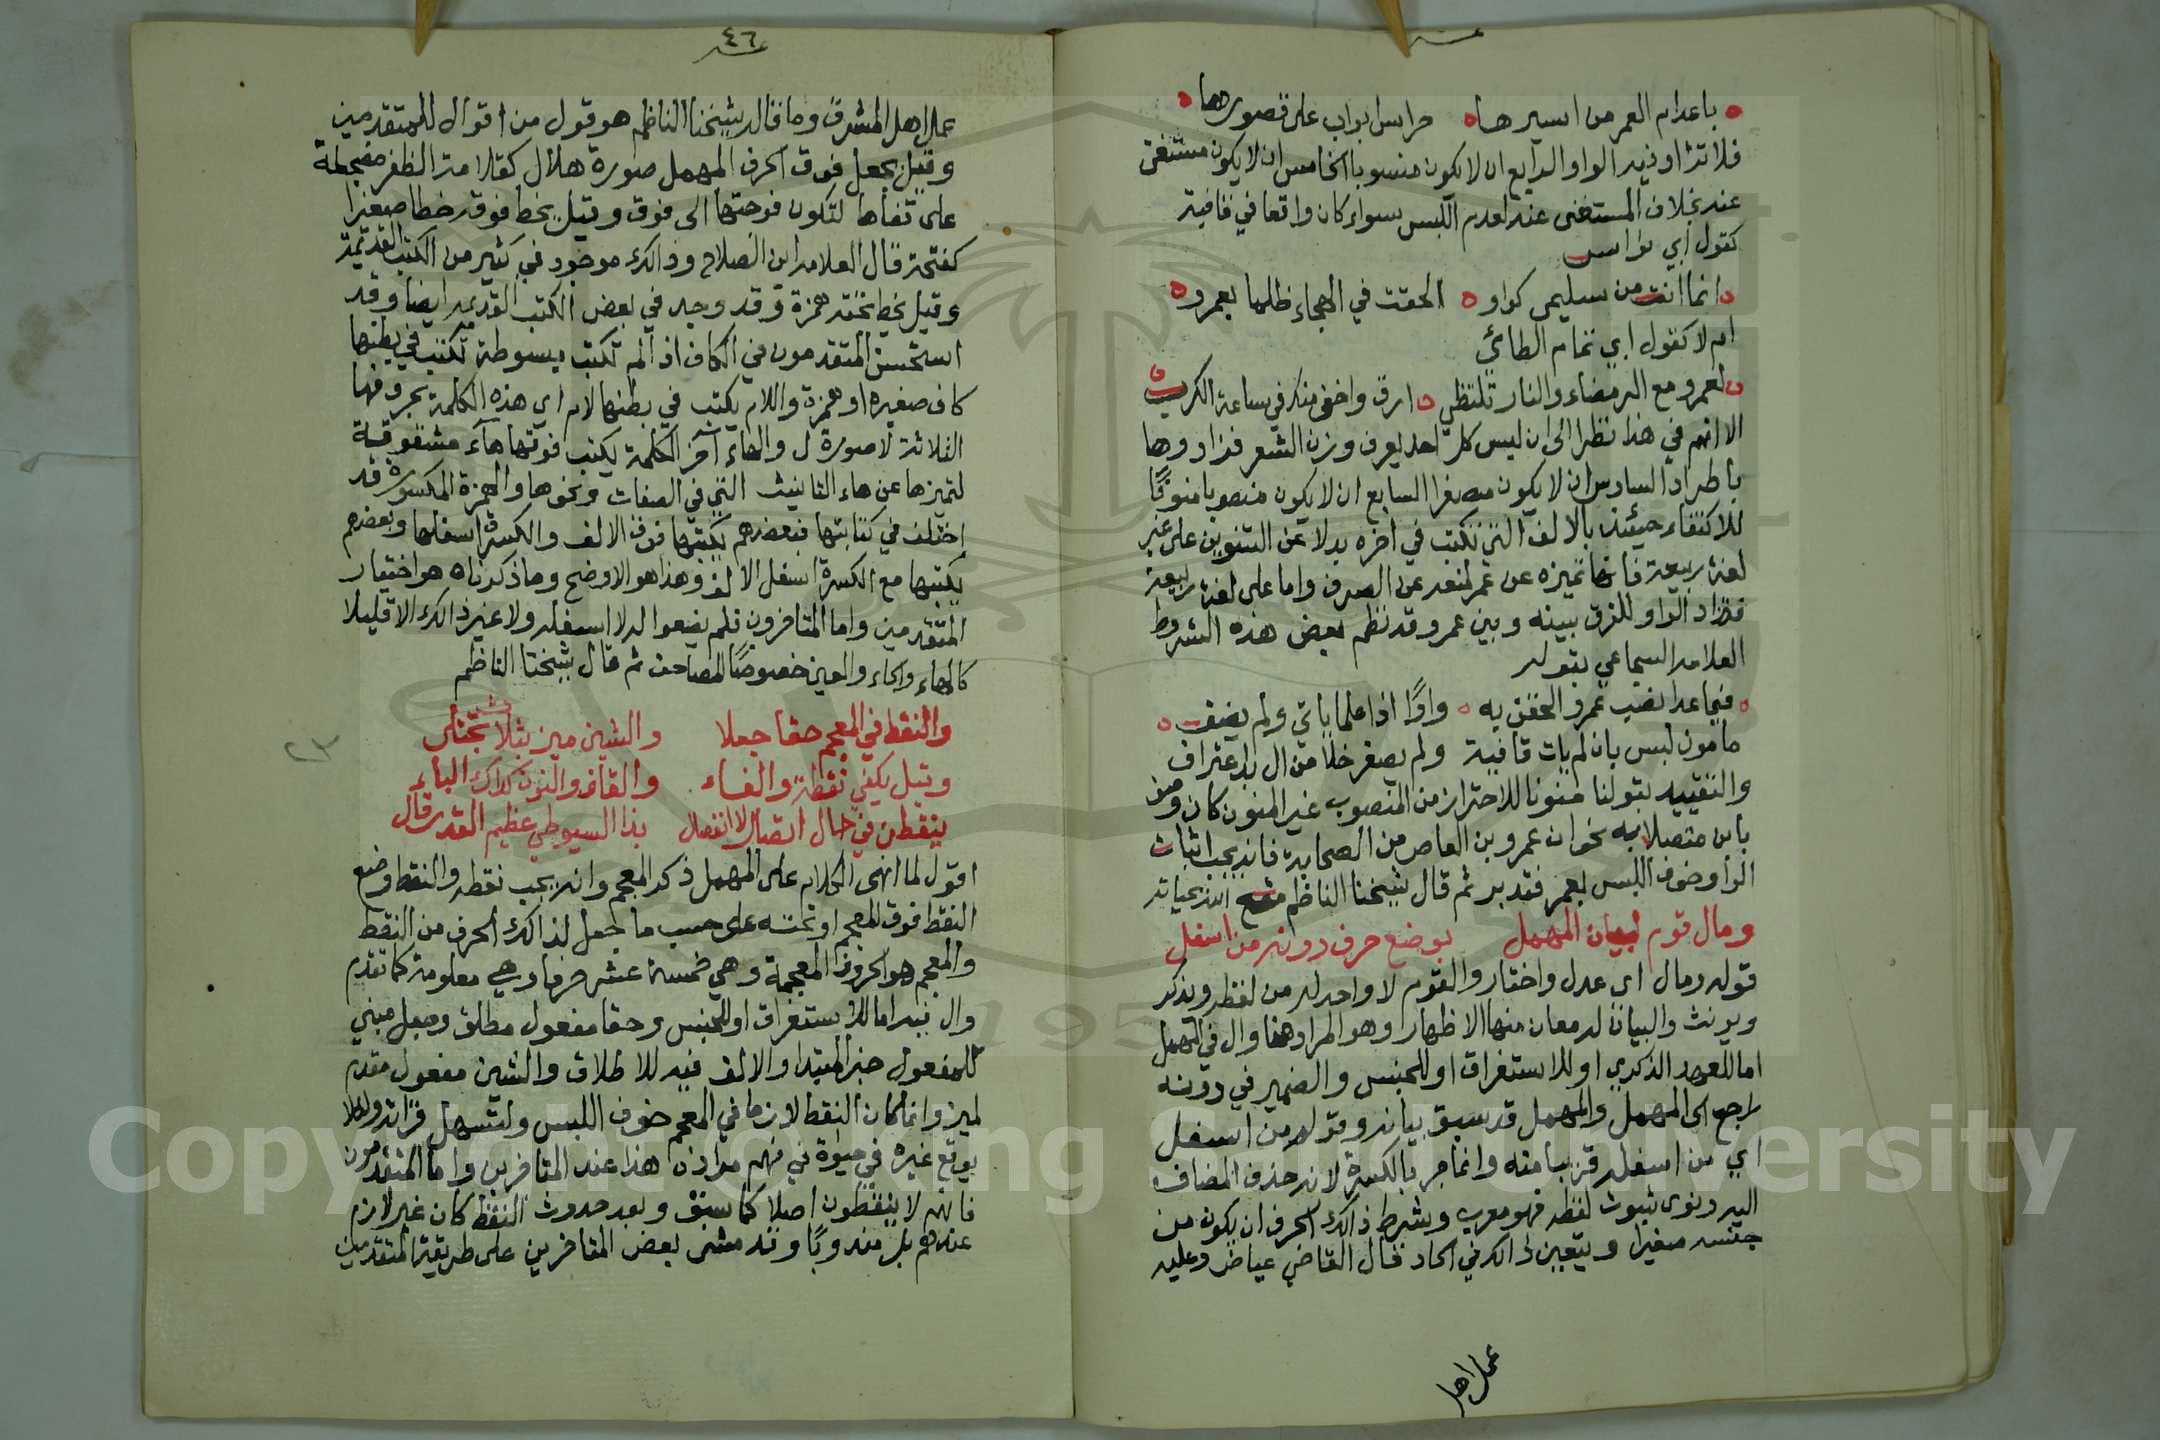 باعدام العمر من اسيرها حراس ابواب على قصورها
فلا تزاد فيه الواو الرابع ان لا يكون منسوبا الخامس ان لا يكون مستغنى
عنه بخلاف المستغنى عنه لعدم اللبس سواء كان واقعا في قافية
كقول ابي نواس
انما انت من سليمى كواو الحقت في الهجاء ظلما بعمرو
ام لا كقول ابي تمام الطائي
لعمرو مع الرمضاء والنار تلتظي ارق واحفى منك في ساعة الكرب
الا انهم في هذا نظرا الى ان ليس كل احد يعرف وزن الشعر فزادوها
باطراد السادس ان لا يكون مصغرا السابع ان لا يكون منصوبا منونًا
للاكتفاء حينئذ بالالف التي تكتب في اخره بدلا عن التنوين على غير
لغة ربيعة فانها تميزه عن عمر لمنعه من الصرف واما على لغة ربيعة
فتزاد الواو للفرق بينه وبين عمر وقد نظم بعض هذه الشروط
العلامه السجاعي بقوله
فيما عدا نصب عمرو الحقن به واوًا اذا علما ياتي ولم يضف
مامون لبس بان لم يات قافية ولم يصغر خلا من ال بلا عتراف
والتقييد بقولنا منونا للاحتراز من المنصوب غير المنون كان وصف
بابن متصلا به نحو ان عمرو بن العاص من الصحابة فانه يجب اثبات
الواو خوف اللبس بعمر فتدبر ثم قال شيخنا الناظم متع الله بحياته
ومال قوم لبيان المهمل بوضع حرف دونه من اسفل
قوله ومال اي عدل واختار والقوم لا واحد له من لفظه ويذكر
ويونث والبيان له معان منها الاظهار وهو المراد هنا وال في المهمل
اما للعهد الذكري او للاستغراق او للجنس والضمير في دونه
راجع الى المهمل والمهمل قد سبق بيانه وقوله من اسفل
اي من اسفله وانما جر بالكسرة لانه حذف المضاف
اليه ونوى ثبوت لفظه فهو معرب وبشرط ذالك الحرف ان يكون من
جنسه صغيرا ويتعين ذالك في الحاد قال القاضي عياض وعليه
عمل اهل
٤٦
عمل اهل المشرق وما قاله شيخنا الناظم هو قول من اقوال للمتقدمين
وقيل يجعل فوق الحرف المهمل صورة هلال كقلامة الظفر مضجعة
على قفاها لتكون فرجتها الى فوق وقيل يخط فوقه خطا صغيرا
كفتحة قال العلامه ابن الصلاح وذالك موجود في كثير من الكتب القديمة
وقيل يخط تحته همزة وقد وجد في بعض الكتب القديمه ايضا وقد
استحسن المتقدمون في الكاف اذا لم تكتب مبسوطة تكتب في بطنها
كاف صغيره او همزة واللام يكتب في بطنها لام اي هذه الكلمة بحروفها
الثلاثة لا صورة ل والهاء آخر الكلمة يكتب فوقها هآء مشقوقة
لتميزها عن هاء التانيث التي في الصفات ونحوها والهمزة المكسورة قد
اختلف في كتابتها فبعضهم يكتبها فوق الالف والكسرة اسفلها وبعضهم
يكتبها مع الكسرة اسفل الالف وهذا هو الاوضح وما ذكرناه هو اختيار
المتقدمين واما المتاخرون فلم يضعوا له لا اسفله ولا غير ذالك الا قليلا
كالهاء والحاء والعين خصوصًا المصاحف ثم قال شيخنا الناظم
والنقط في المعجم حقا جعلا والشين ميز بثلاث تجتلى
وقيل يكفي نقطة والفاء والقاف والنون كذاك الياء
٢٣
ينقطن في حال اتصال لا انفصال بذا السيوطي عظيم القدر قال
اقول لما انهى الكلام على المهمل ذكر المعجم وانه يجب نقطه والنقط وضع
النقط فوق المعجم او تحته على حسب ما جعل لذالك الحرف من النقط
والمعجم هو الحروف المعجمة وهي خمسة عشر حرفا وهي معلومة كما تقدم
وال فيه اما للاستغراق او للجنس وحقا مفعول مطلق وجعل مبني
للمفعول خبر المبتدا والالف فيه للاطلاق والشين مفعول مقدم
لميز وانما كان النقط لازما في المعجم خوف اللبس ولتسهل قرائته ولئلا
يوقع غيره في حيرة في فهم مراده هذا عند المتاخرين واما المتقدمون
فانهم لا ينقطون اصلا كما سبق وبعد حدوث النقط كان غير لازم
عندهم بل مندوبًا وقد مشى بعض المتاخرين على طريقة المتقدمين
Copyright © King Saud University